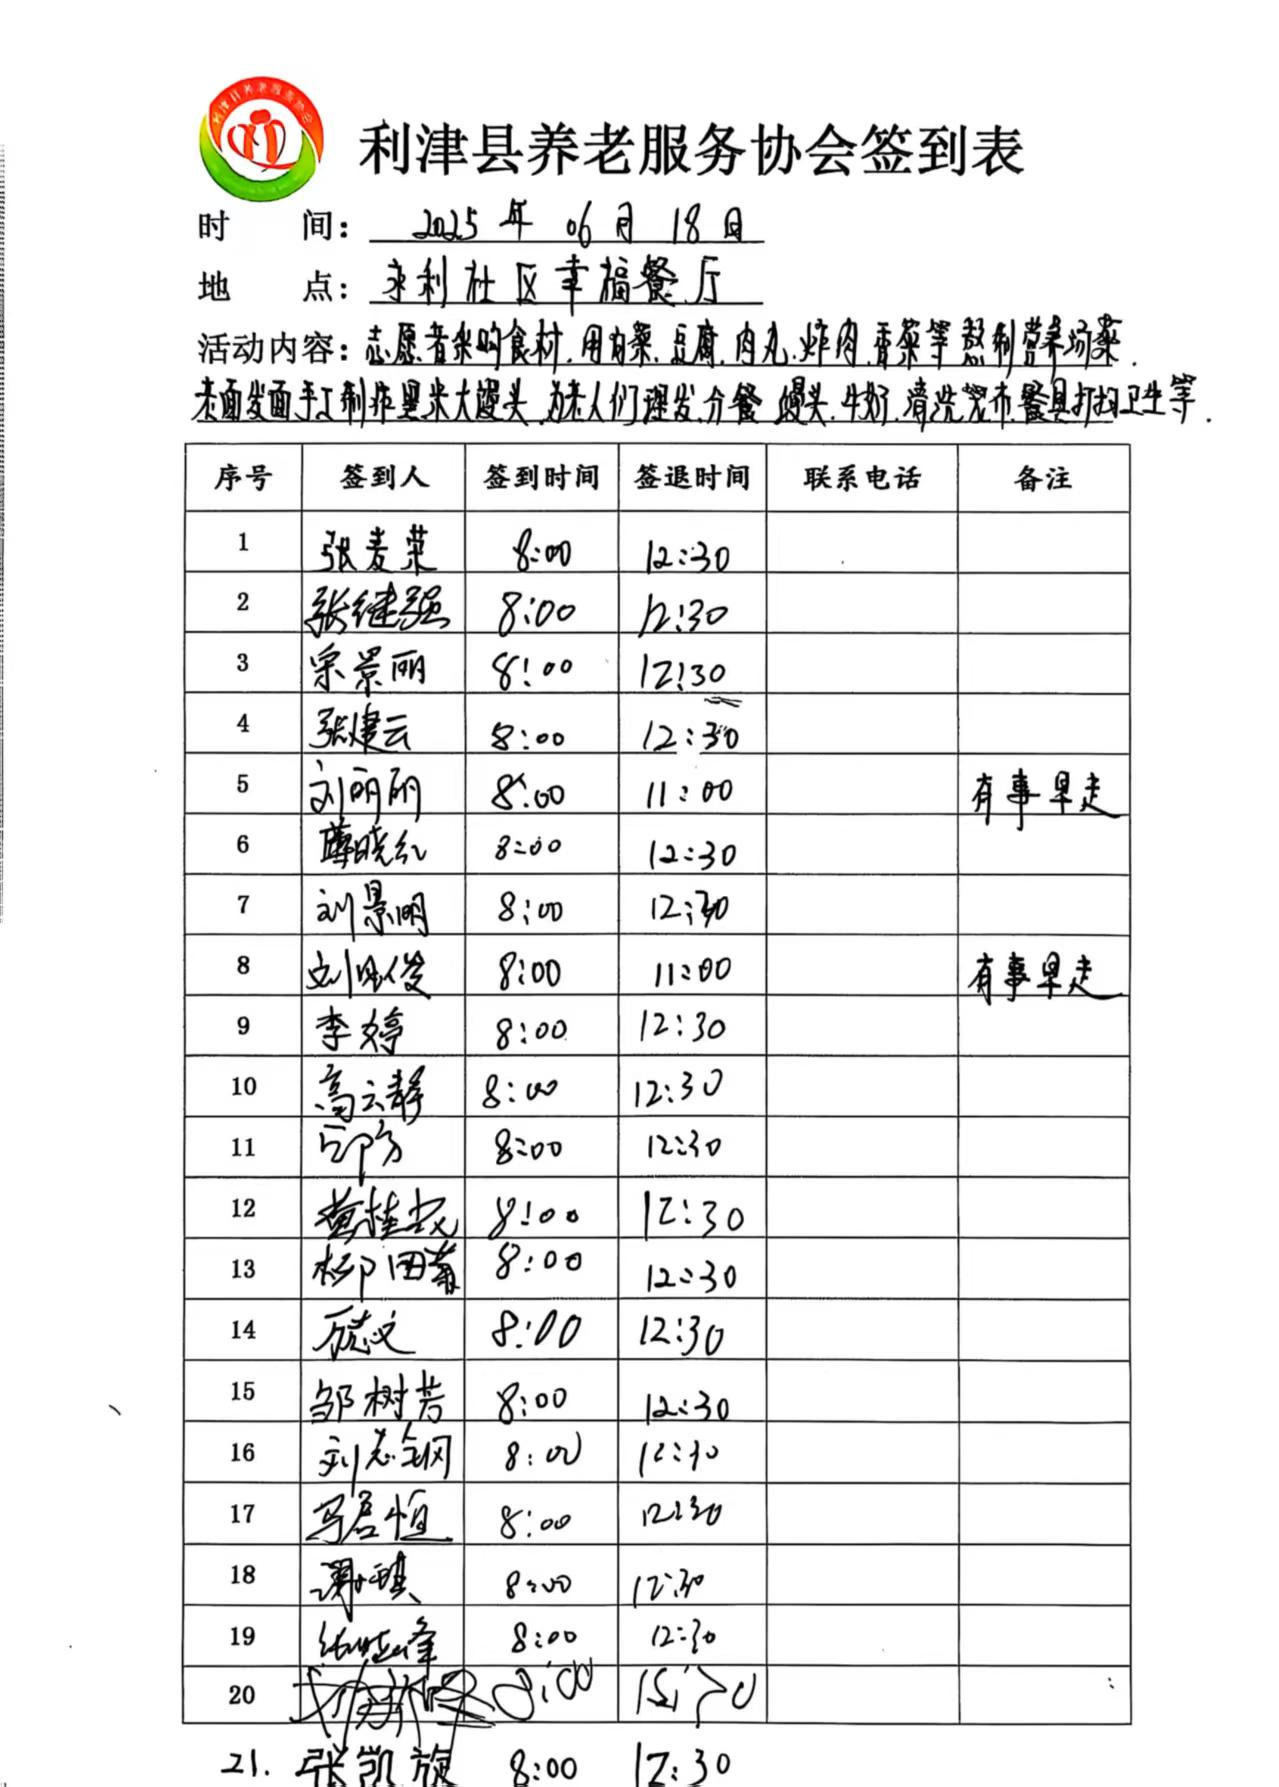 利津县养老服务协会
利津县养老服务协会签到表
时 间: 2025年06月18日
地 点: 永利社区幸福餐厅
活动内容: 志愿者采购食材.用白菜.豆腐.肉丸.炸肉.香菜等熬制营养汤菜.
老面发面手工制作黑米大馒头.为老人们理发.分餐 馒头.牛奶.清洗笼布.餐具打扫卫生等.
序号 签到人 签到时间 签退时间 联系电话 备注
1 张麦荣 8:00 12:30
2 张继强 8:00 12:30
3 宋景丽 8:00 12:30
4 张建云 8:00 12:30
5 刘丽丽 8:00 11:00 有事早走
6 薛晓红 8:00 12:30
7 刘景明 8:00 12:30
8 刘 俊 8:00 11:00 有事早走
9 李婷 8:00 12:30
10 高云静 8:00 12:30
11 8:00 12:30
12 黄桂 8:00 12:30
13 柳田菊 8:00 12:30
14 8:00 12:30
15 邹树芳 8:00 12:30
16 刘志钢 8:00 12:30
17 马君恒 8:00 12:30
18 谢 琪 8:00 12:30
19 张晓峰 8:00 12:30
20 8:00
21. 张凯旋 8:00 12:30